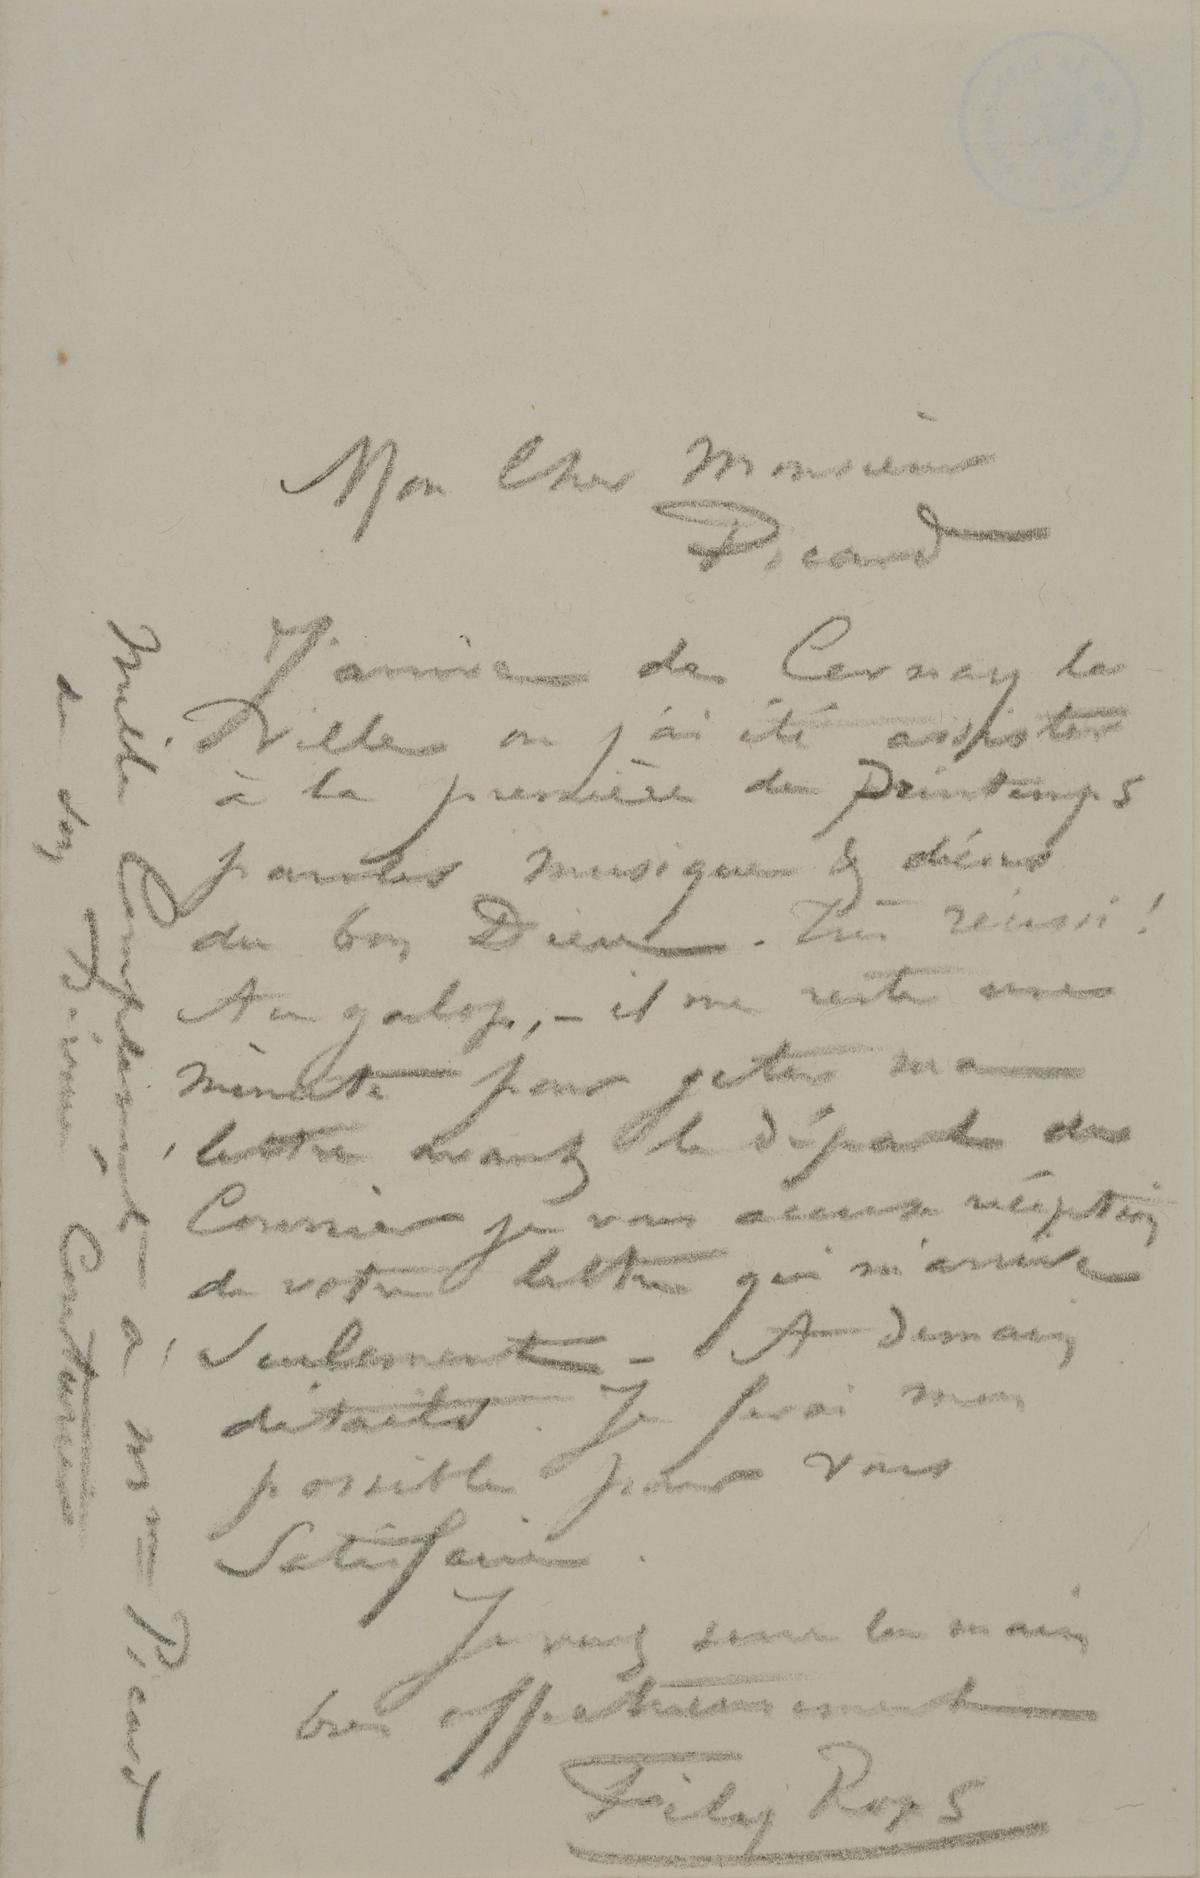 Mon Cher Monsieur
Picard
J'arrive de Cernay la
Ville où j'ai été assister
à la première du Printemps
paroles musique & décors
du bon Dieu. Très réussi!
Au galop, – il me reste une
minute pour jeter ma
lettre avant le départ du
Courrier je vous accuse réception
de votre lettre qui m'arrive
seulement – A demain
détails. Je ferai mon
possible pour vous
Satisfaire.
Je vous serre la main
bien affectueusement
Félicy Rops
Mille Compliments à Mme Picard